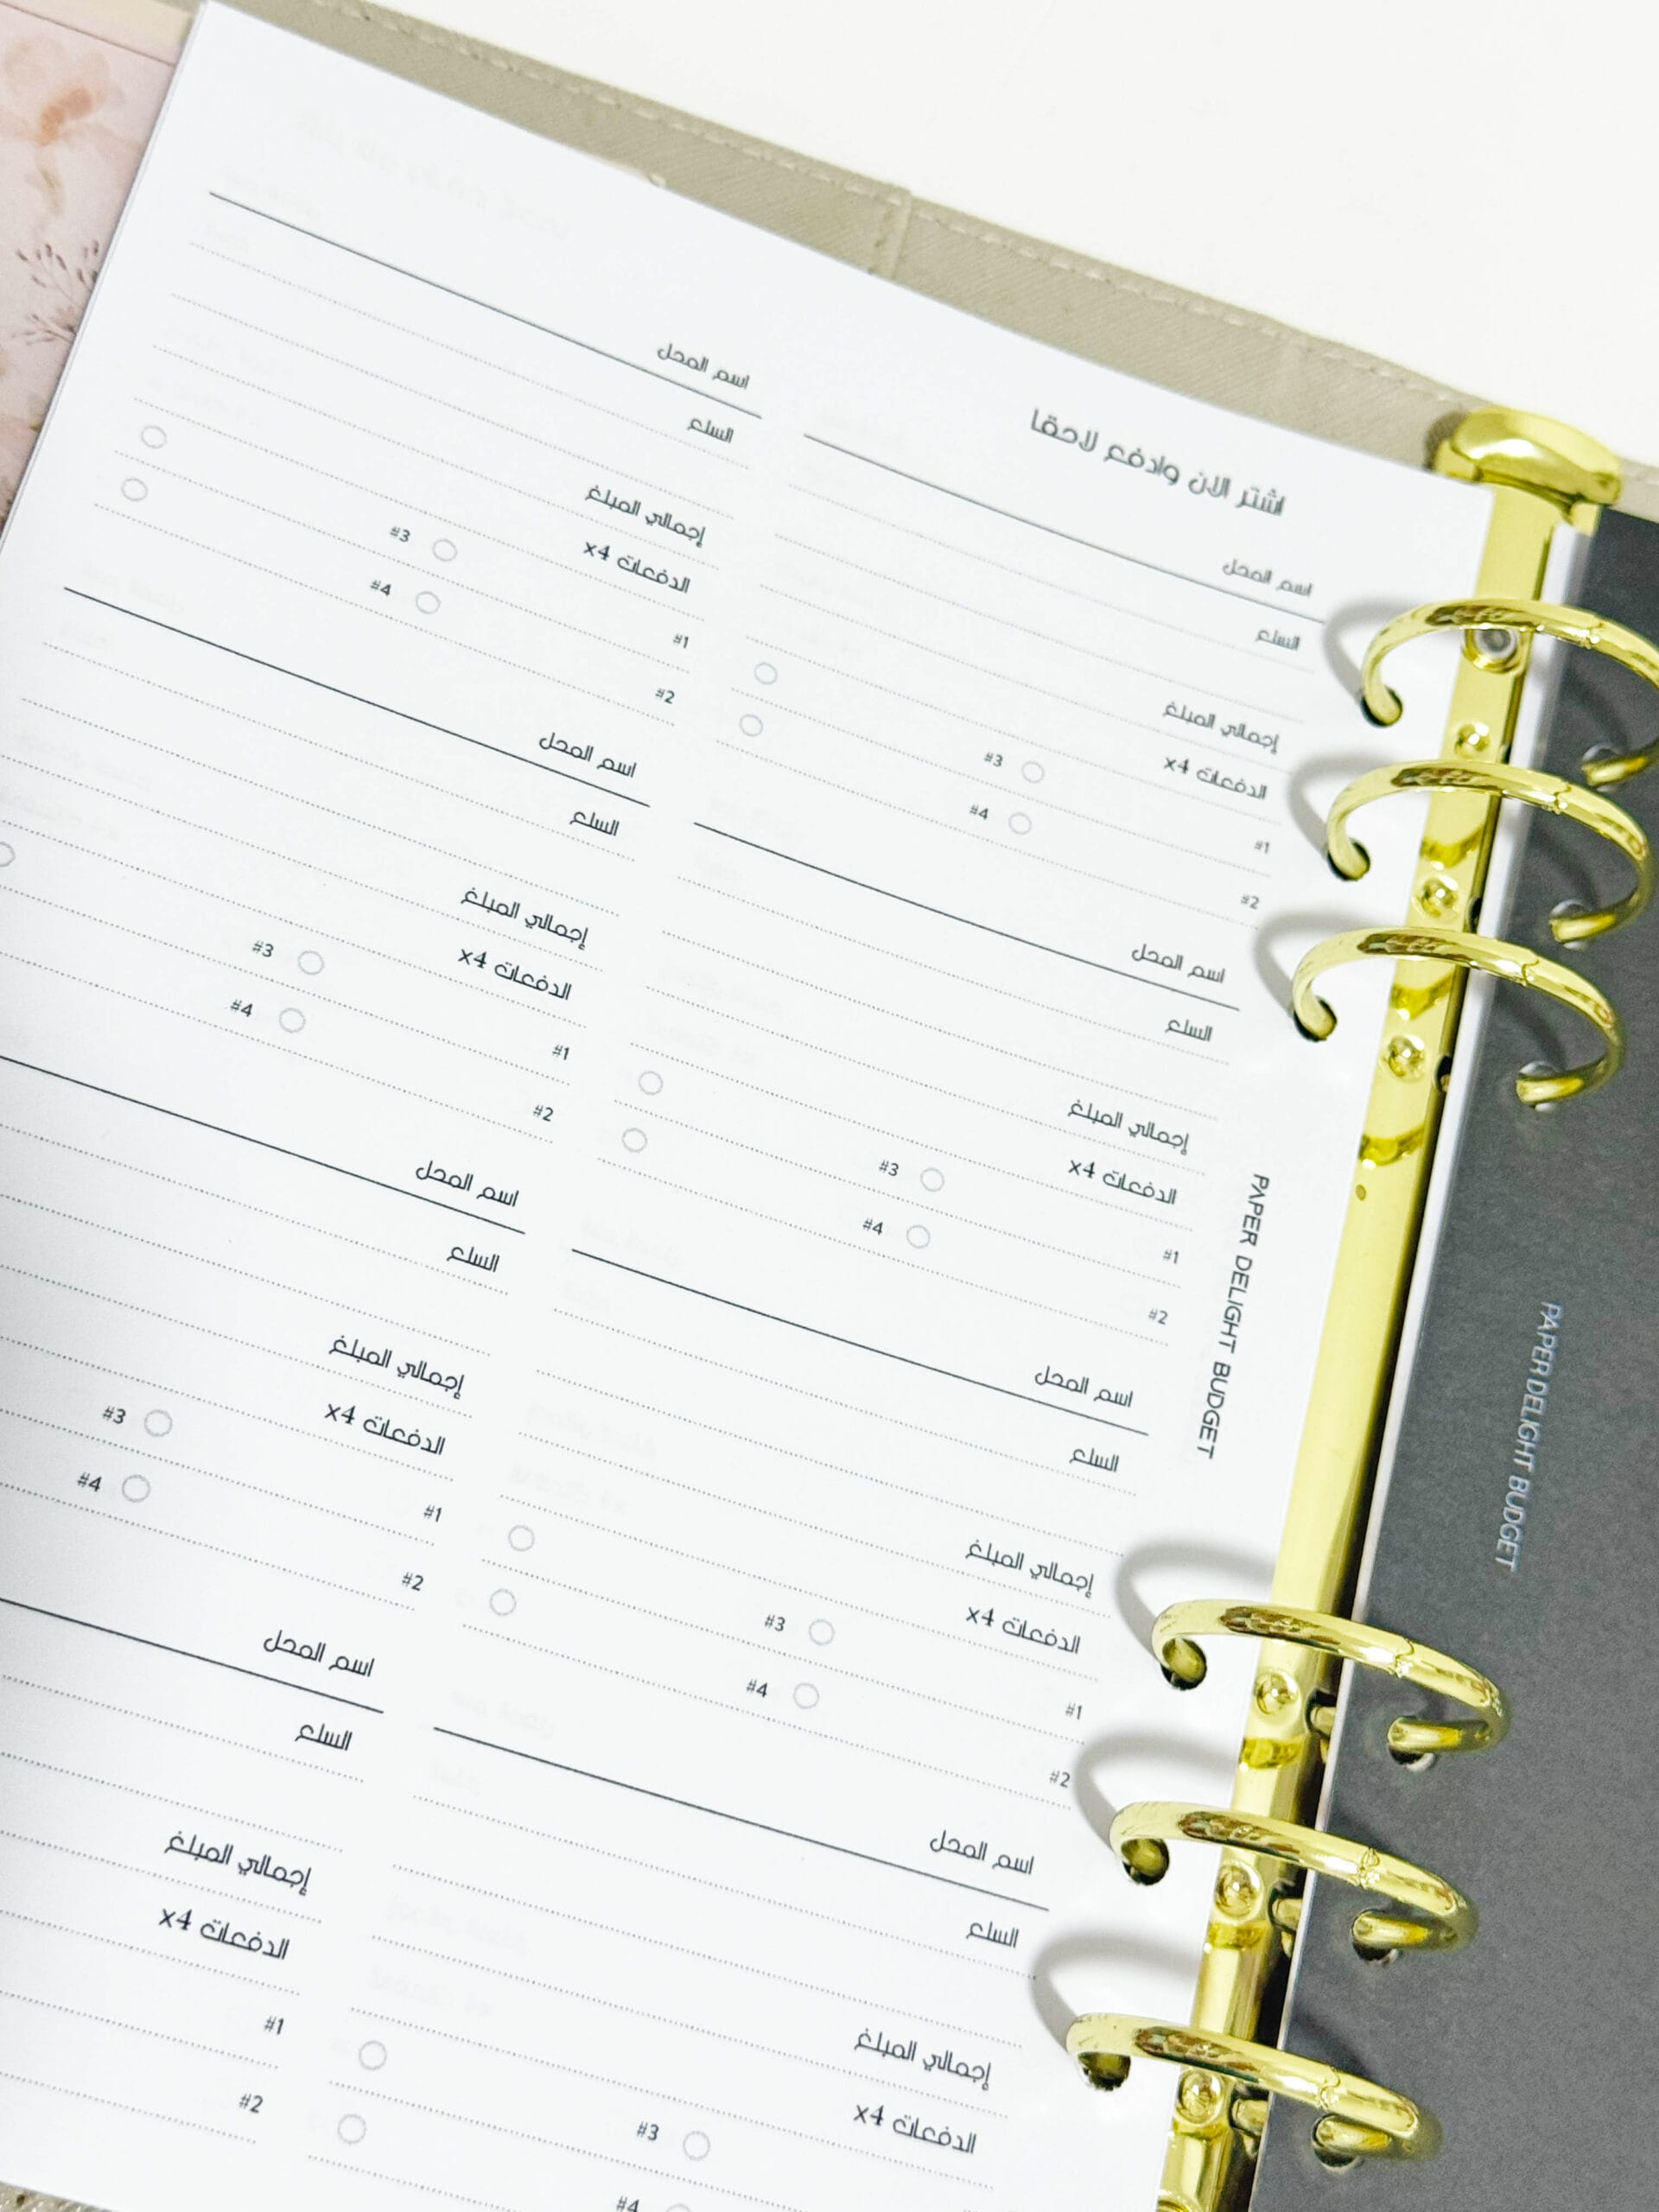 اشتر الان وادفع لاحقا
اسم المحل
السلع
إجمالي المبلغ
الدفعات x4
#1
#3
#2
#4
اسم المحل
السلع
إجمالي المبلغ
الدفعات x4
#1
#3
#2
#4
اسم المحل
السلع
إجمالي المبلغ
الدفعات x4
#1
#3
#2
#4
اسم المحل
السلع
إجمالي المبلغ
الدفعات x4
#3
#4
اسم المحل
السلع
إجمالي المبلغ
الدفعات x4
#1
#3
#2
#4
اسم المحل
السلع
إجمالي المبلغ
الدفعات x4
#1
#3
#2
#4
اسم المحل
السلع
إجمالي المبلغ
الدفعات x4
#1
#3
#2
#4
اسم المحل
السلع
إجمالي المبلغ
الدفعات x4
#1
#2
PAPER DELIGHT BUDGET
PAPER DELIGHT BUDGET